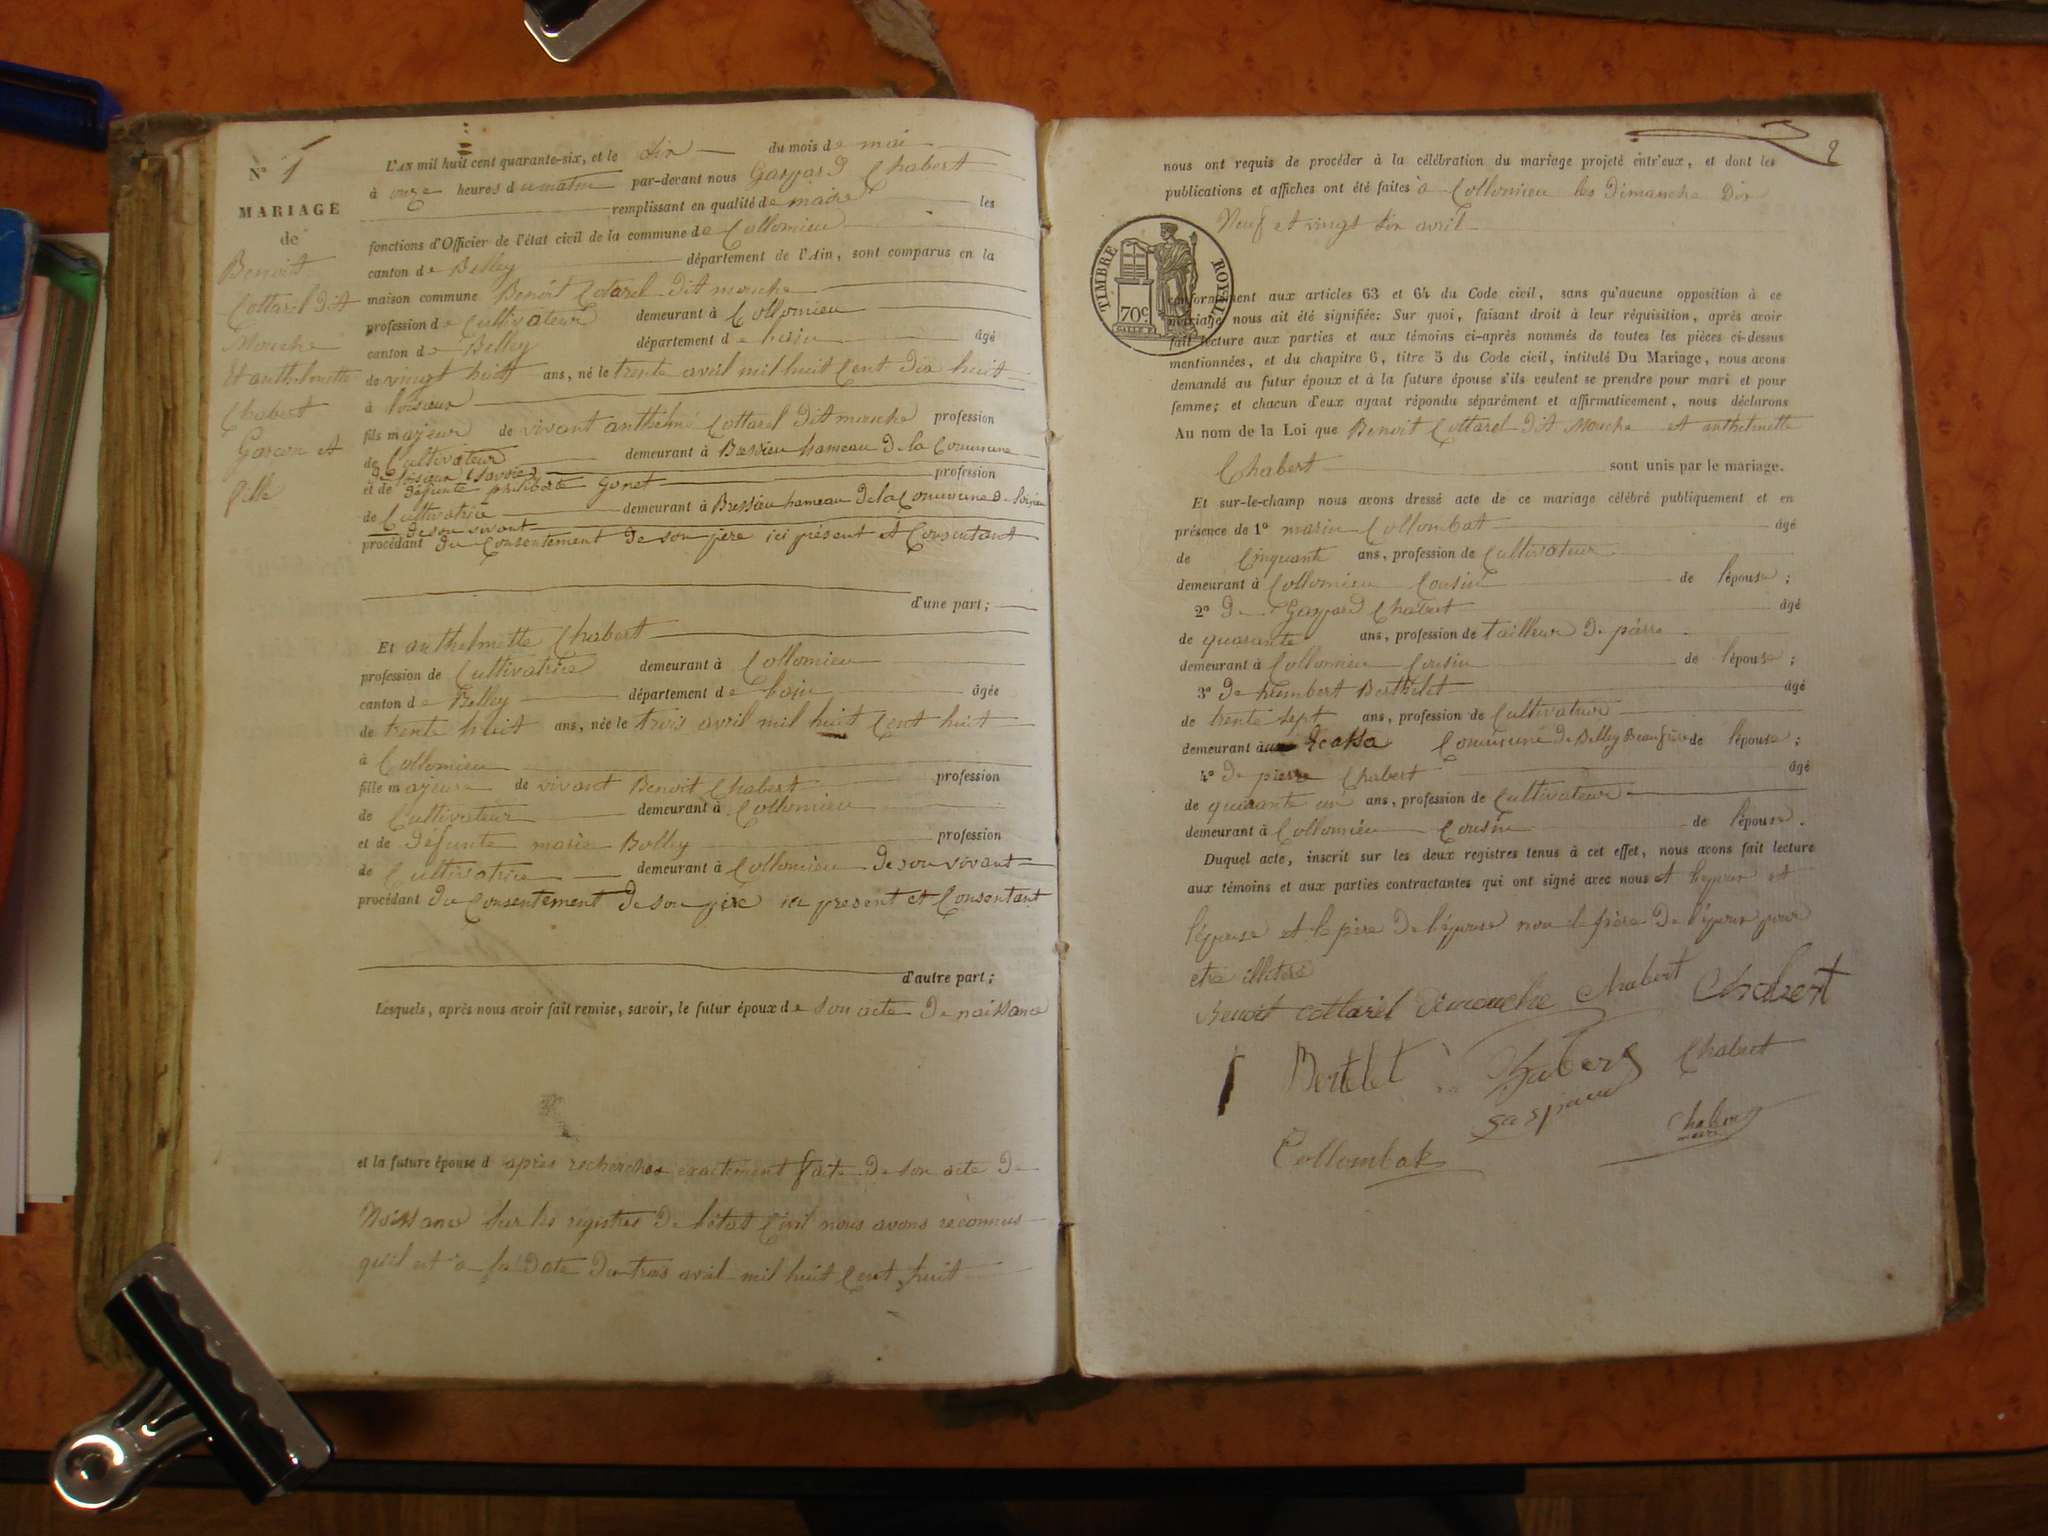 N° 1
MARIAGE
de
Benoit
Cottarel dit
Mouche
Et anthelmette
Chabert
Garcon et
fille
L'AN mil huit cent quarante-six, et le dix du mois de mai
à onze heures du matin par-devant nous Gaspard Chabert
remplissant en qualité de maire les
fonctions d'Officier de l'état civil de la commune de Collomieu
canton de Belley département de l'Ain, sont comparus en la
maison commune Benoit Cotarel dit mouche
profession de Cultivateur demeurant à Collomieu
canton de Belley département de
âgé
de vingt huit ans, né le trente avril mil huit Cent dix huit
à loisieux
fils majeur de vivant anthelme Cottarel dit mouche profession
de Cultivateur demeurant à Bressieu hameau de la Commune
de loisieux (Savoie)
et de défunte philiberte Gonet profession
de Cultivatrice demeurant à Bressieu hameau de la Commune de
de son vivant
procédant du Consentement de son père ici présent et Consentant
d'une part;
Et anthelmette Chabert
profession de Cultivatrice demeurant à Collomieu
canton de Belley département de âgée
de trente huit ans, née le trois avril mil huit Cent huit
à Collomieu
fille majeure de vivant Benoit Chabert profession
de Cultivateur demeurant à Collomieu
et de défunte marie Bolley profession
de Cultivatrice demeurant à Collomieu de son vivant
procédant du Consentement de son père ici present et Consentant
d'autre part;
Lesquels, après nous avoir fait remise, savoir, le futur époux de son acte de naissance
et la future épouse d après recherches exactement faite de son acte de
Naissance sur les registres de l'état Civil nous avons reconnus
qu'il est à la date du trois avril mil huit Cent huit
2
nous ont requis de procéder à la célébration du mariage projeté entr'eux, et dont les
publications et affiches ont été faites à Collomieu les dimanche dix
Neuf et vingt six avril
TIMBRE ROYAL
70c
conformément aux articles 63 et 64 du Code civil, sans qu'aucune opposition à ce
mariage nous ait été signifiée: Sur quoi, faisant droit à leur réquisition, après avoir
fait lecture aux parties et aux témoins ci-après nommés de toutes les pièces ci-dessus
mentionnées, et du chapitre 6, titre 5 du Code civil, intitulé Du Mariage, nous avons
demandé au futur époux et à la future épouse s'ils veulent se prendre pour mari et pour
femme; et chacun d'eux ayant répondu séparément et affirmativement, nous déclarons
Au nom de la Loi que Benoit Cottarel dit Mouche et anthelmette
Chabert sont unis par le mariage.
Et sur-le-champ nous avons dressé acte de ce mariage célébré publiquement et en
présence de 1° marin Collombat âgé
de Cinquante ans, profession de Cultivateur
demeurant à Collomieu Cousin de l'épouse;
2° de Gaspard Chabert âgé
de quarante ans, profession de tailleur de pierre
demeurant à Collomieu Cousin de l'épouse;
3° de humbert Berthelet âgé
de trente sept ans, profession de Cultivateur
demeurant à Commune de Belley Beaufrère de l'épouse;
4° de pierre Chabert âgé
de quarante un ans, profession de Cultivateur
demeurant à Collomieu Cousin de l'épouse.
Duquel acte, inscrit sur les deux registres tenus à cet effet, nous avons fait lecture
aux témoins et aux parties contractantes qui ont signé avec nous et lepoux et
l'épouse et le père de l'épouse non le père de l'époux pour
etre illitéré
Benoit cottarel dimouche Chabert Chabert
Bertelet Chabert Chabert
Collombat Chabert
maire